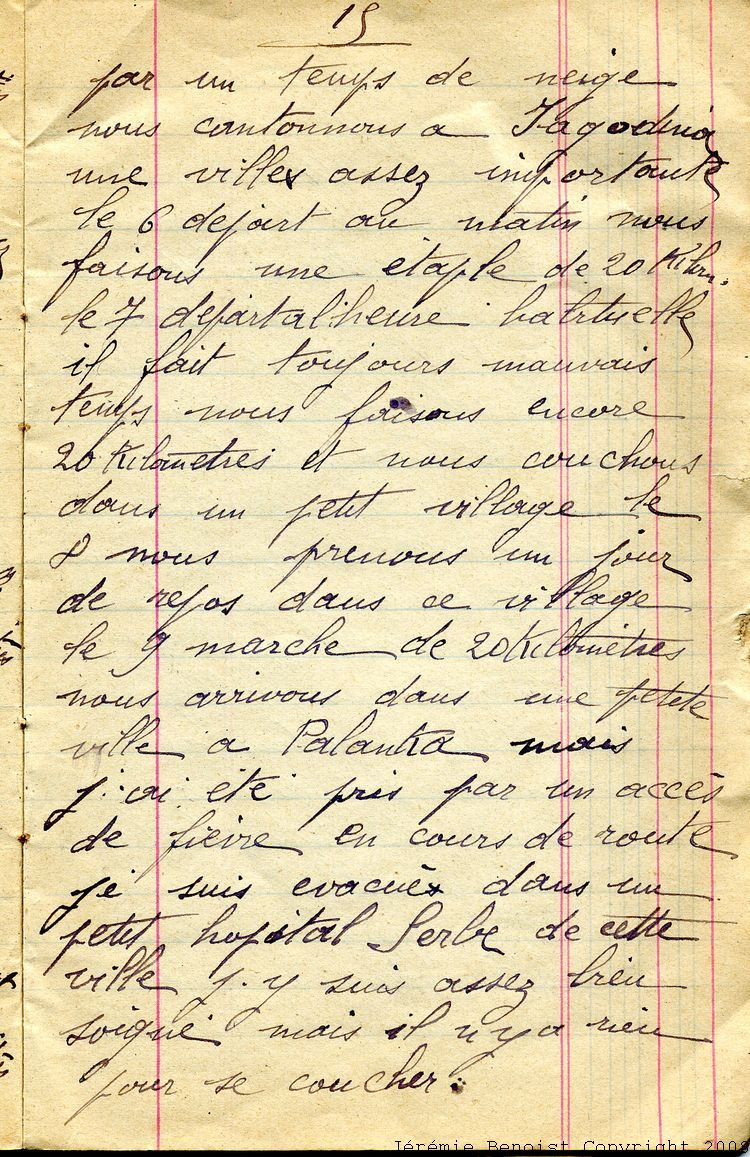 15
par un temps de neige
nous cantonnous a Jagodina
une ville assez importante
le 6 depart au matin nous
faisons une étaple de 20 Kilm.
le 7 départ a lheure habituelle
il fait toujours mauvais
temps nous faisons encore
20 Kilometres et nous couchons
dans un petit village le
8 nous prenons un jour
de repos dans ce village
le 9 marche de 20 Kilometres
nous arrivons dans une petite
ville a Palanka mais
j'ai été pris par un accés
de fièvre en cours de route
je suis evacué dans un
petit hopital Serbe de cette
ville j.y suis assez bien
soigné mais il n y a rien
pour se coucher.
Jérémie Benoist Copyright 2008